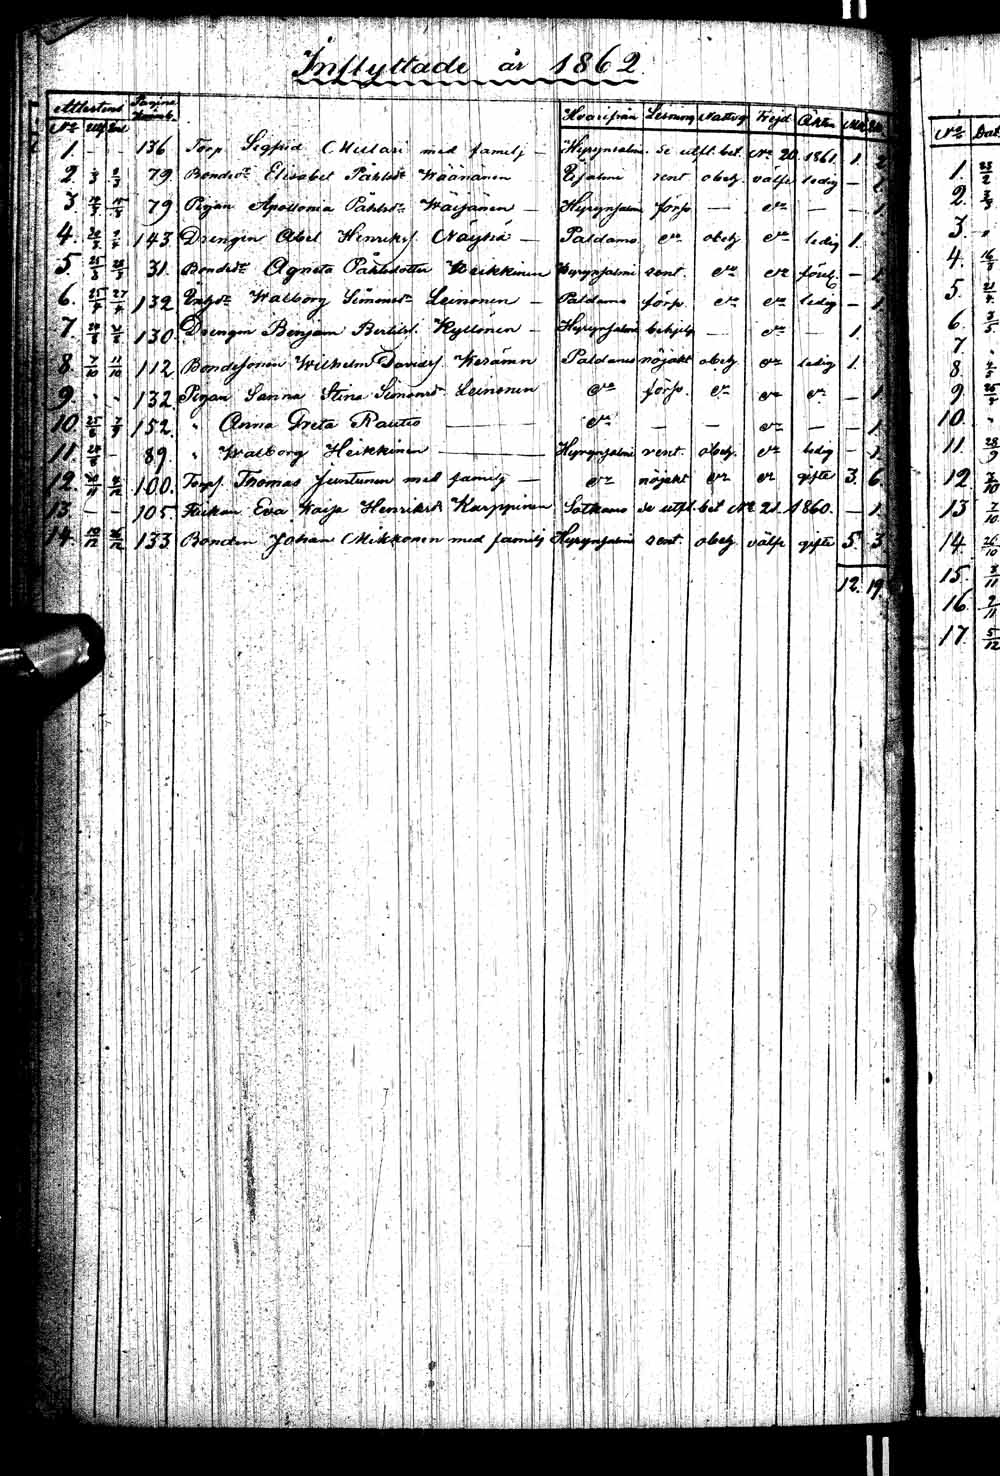 Inflyttade år 1862
Attestens Pagina Hvarifrån Läsning Nattvg Frejd Äkten. Mk. Qk.
No Utf Inl
1. – – 136 Torp. Sigfrid Mulari med familj – Hyrynsalmi. se utfl. bet. No 20. 1861. 1. 2.
2. 79 Bondedr Elisabet Påhlsdr Wäänänen rent obeh. välfr. ledig – 1.
3. 79 Pigan Apollonia Påhlsdr Wäisänen – Hyrynsalmi försv. – do – – 1.
4. 143 Drengen Abel Henriks. – Paldamo do obeh do ledig 1.
5. 31. Bondedr Agneta Påhlsdotter Heikkinen Hyrynsalmi rent. do do – 1.
6. 132 Walborg Simonsdr Leinonen – Paldamo försv. do do ledig – 1.
7. 130. Drengen Benjam Bertils. Kyllönen – Hyrynsalmi – do – 1.
8. 7/10 11/10 112 Bondesonen Wilhelm Davids. Keränen Paldamo nöjakt obeh do ledig 1.
9. " " 132. Pigan Sanna Stina Simonsdr Leinonen do försv. do do do – 1.
10. 152. " Anna Greta Rautio – do – – do – – 1.
11. – 89. " Walborg Heikkinen – Hyrynsalmi rent. obeh. do ledig – 1.
12. 100. Torp. Thomas Juntunen med familj – do nöjakt do do gifte 3. 6.
13. – – 105. Enkan Eva Kaisa Henriksdr Karppinen Sotkamo se utfl. bet No 21. 1860. – 1.
14. 133 Bonden Johan Mikkonen med familj Hyrynsalmi rent. obeh välfr gifte 5. 3.
12. 19.
No Dat.
1. 25/2
2. 3/3
3. "
4. 16/3
5.
6. 3/5
7. "
8.
9.
10. "
11. 28/9
12. 2/10
13 7/10
14. 26/10
15. 3/11
16. 9/11
17. 5/12